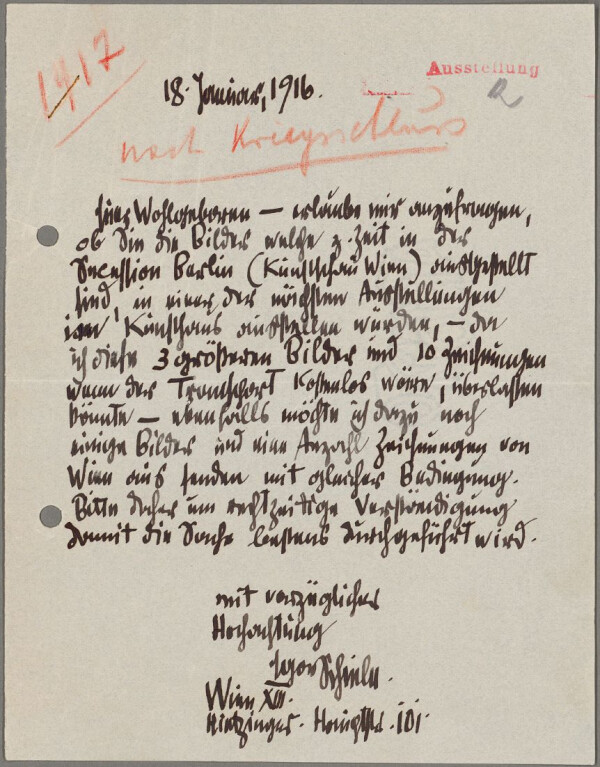 1917
18. Januar, 1916.
Ausstellung
nach Kriegsschluss
Euer Wohlgeboren — erlaube mir anzufragen,
ob Sie die Bilder welche z. Zeit in der
Secession Berlin (Kunstschau Wien) ausgestellt
sind, in einer der nächsten Ausstellungen
im Kunsthaus ausstellen würden, — da
ich diese 3 größeren Bilder und 10 Zeichnungen
wenn der Transport kostenlos wäre, überlassen
könnte — ebenfalls möchte ich dazu noch
einige Bilder und eine Anzahl Zeichnungen von
Wien aus senden mit gleicher Bedingung.
Bitte daher um rechtzeitige Verständigung
damit die Sache bestens durchgeführt wird.
mit vorzüglicher
Hochachtung
Egon Schiele.
Wien XIII.
Hietzinger. Hauptstr. 101.